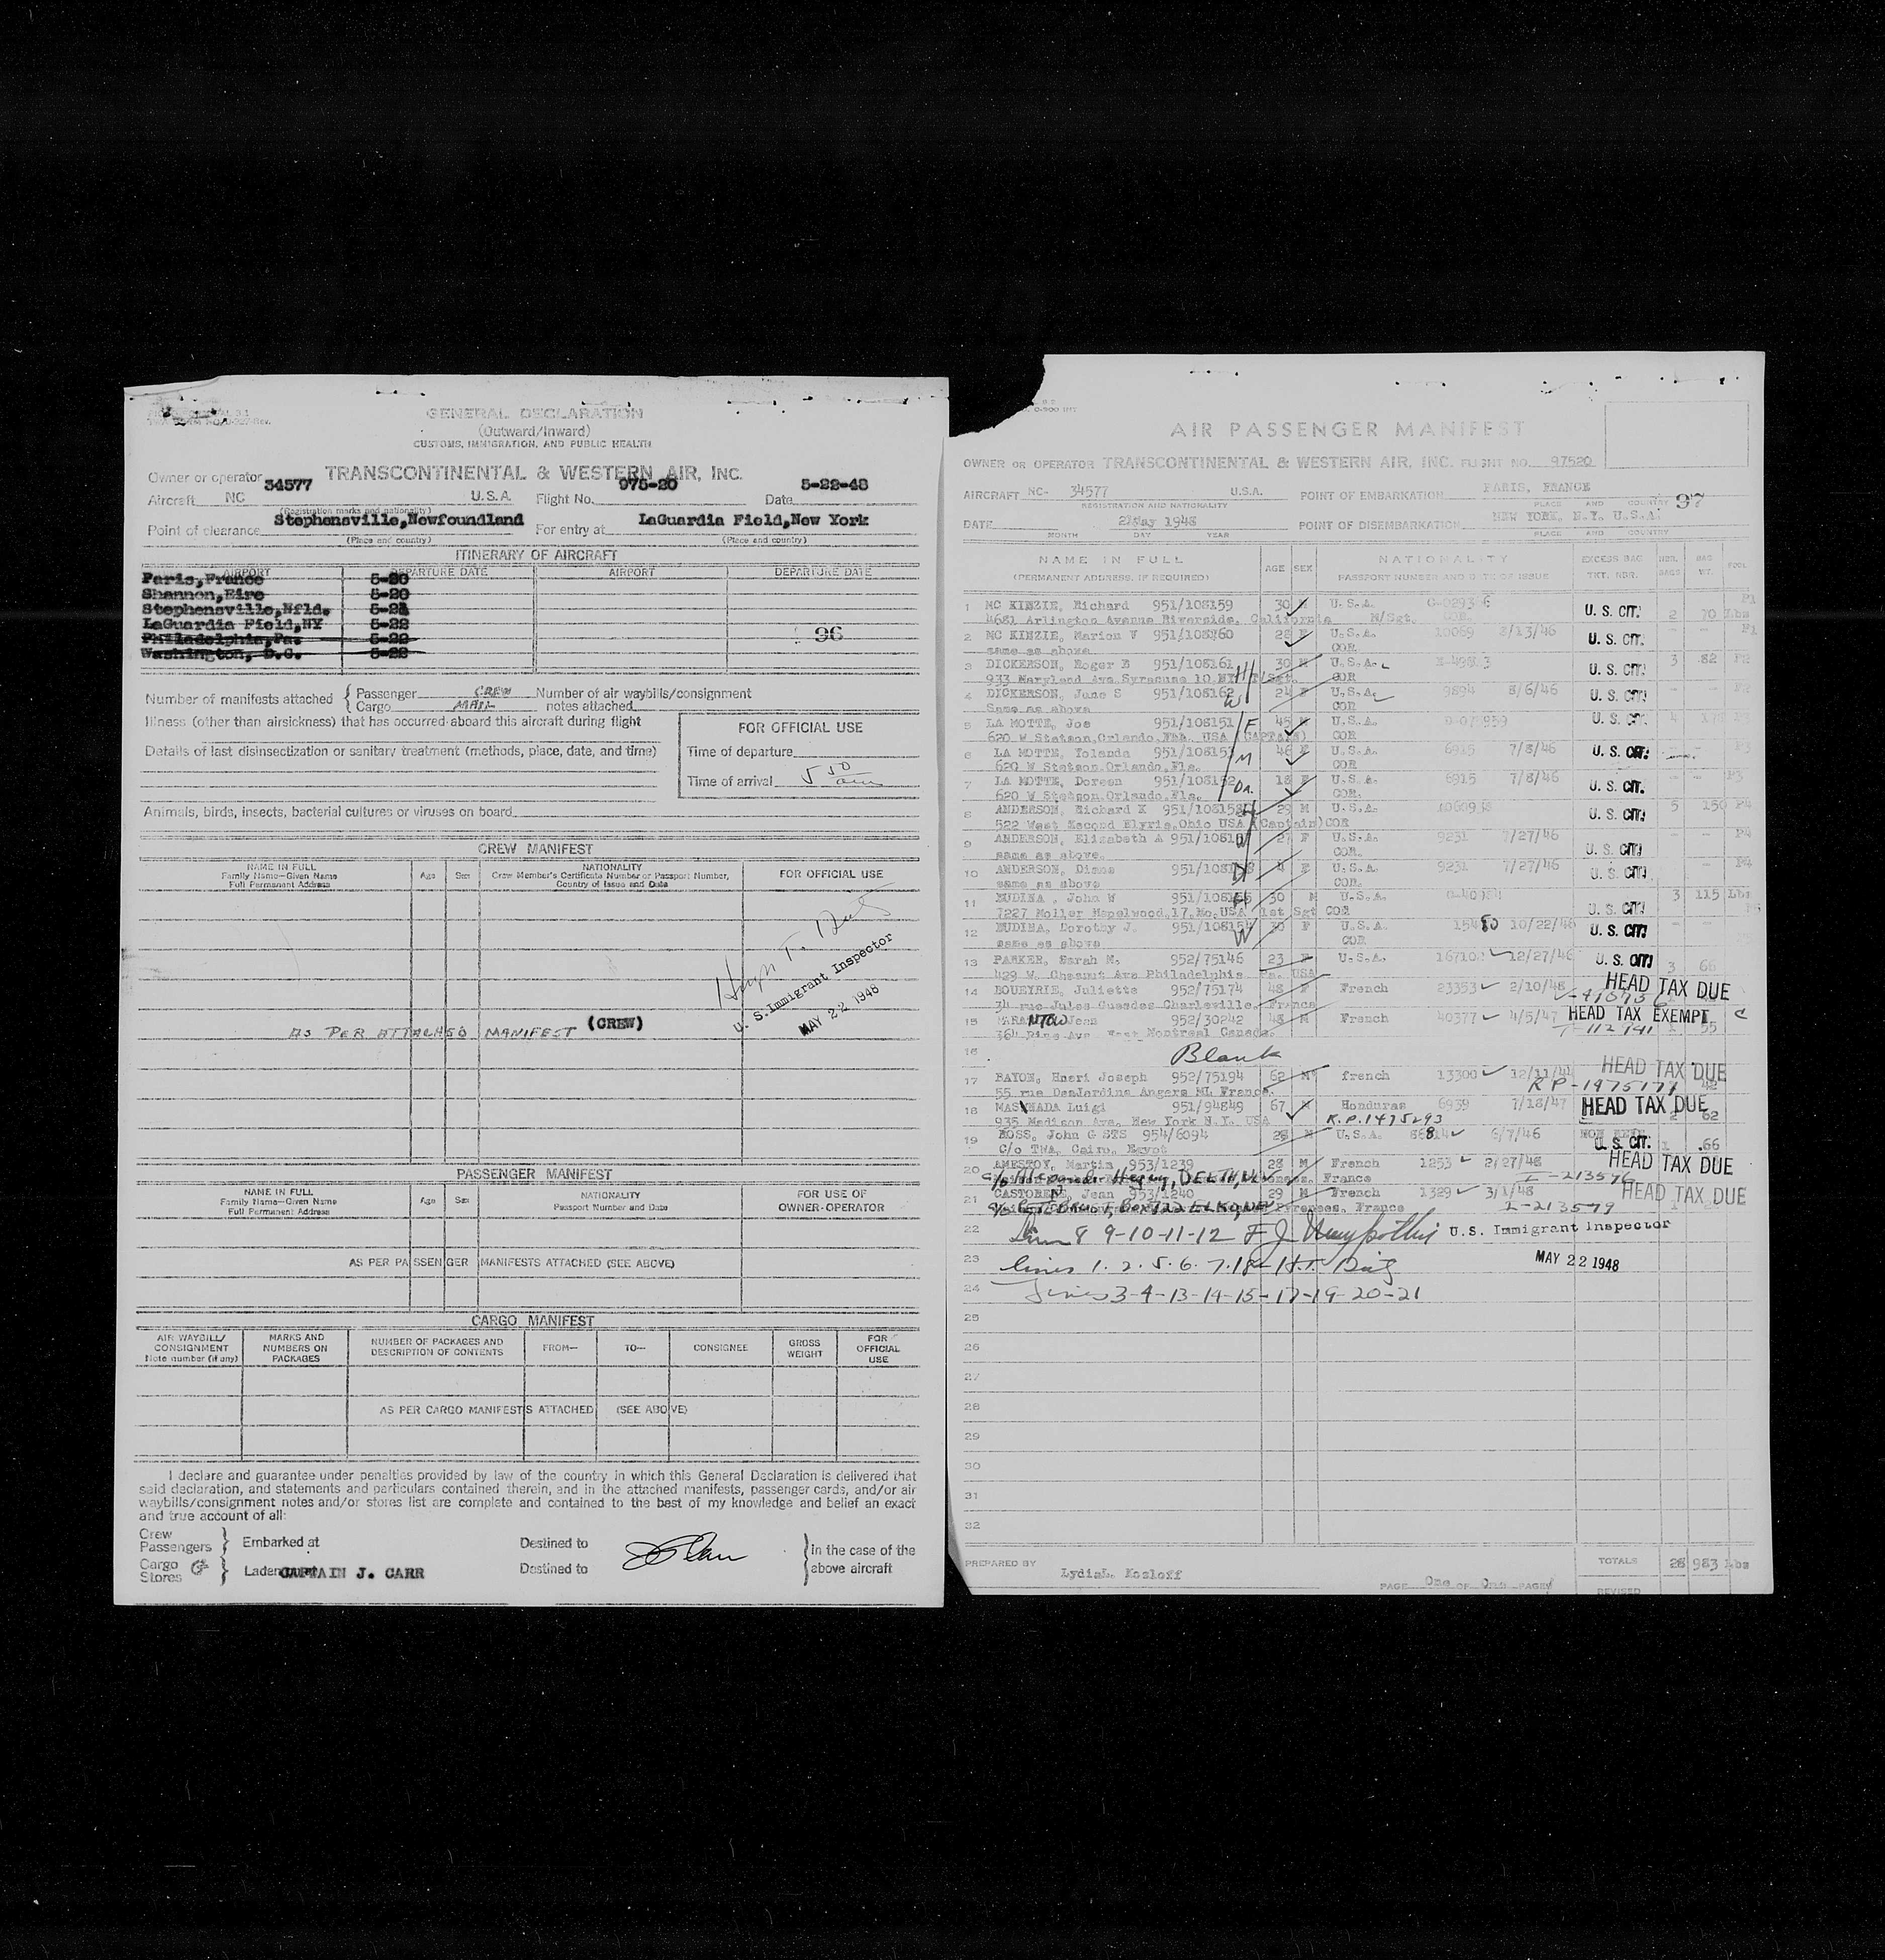 GENERAL DECLARATION
(Outward/Inward)
CUSTOMS, IMMIGRATION, AND PUBLIC HEALTH
Owner or operator TRANSCONTINENTAL & WESTERN AIR, INC.
Aircraft NC 34577 U.S.A. Flight No. 975-20 Date 5-22-48
(Registration marks and nationality)
Point of clearance Stephensville,Newfoundland For entry at LaGuardia Field,New York
(Place and country) (Place and country)
ITINERARY OF AIRCRAFT
AIRPORT DEPARTURE DATE AIRPORT DEPARTURE DATE
Paris,France 5-20
Shannon,Eire 5-20
Stephensville,Nfld. 5-21
LaGuardia Field,NY 5-22
Philadelphia,Pa. 5-22
96
Washington, D.C. 5-22
Number of manifests attached Passenger CREW Number of air waybills/consignment
Cargo MAIL notes attached
Illness (other than airsickness) that has occurred aboard this aircraft during flight
FOR OFFICIAL USE
Details of last disinsectization or sanitary treatment (methods, place, date, and time)
Time of departure
Time of arrival 5 50 am
Animals, birds, insects, bacterial cultures or viruses on board
CREW MANIFEST
NAME IN FULL
Family Name—Given Name
Full Permanent Address
Age Sex
NATIONALITY
Crew Member's Certificate Number or Passport Number,
Country of Issue and Date
FOR OFFICIAL USE
U. S. Immigrant Inspector
MAY 22 1948
AS PER ATTACHED MANIFEST (CREW)
PASSENGER MANIFEST
NAME IN FULL
Family Name—Given Name
Full Permanent Address
Age Sex
NATIONALITY
Passport Number and Date
FOR USE OF
OWNER-OPERATOR
AS PER PASSENGER MANIFESTS ATTACHED (SEE ABOVE)
CARGO MANIFEST
AIR WAYBILL/
CONSIGNMENT
Note number (if any)
MARKS AND
NUMBERS ON
PACKAGES
NUMBER OF PACKAGES AND
DESCRIPTION OF CONTENTS
FROM— TO— CONSIGNEE
GROSS
WEIGHT
FOR
OFFICIAL
USE
AS PER CARGO MANIFESTS ATTACHED (SEE ABOVE)
I declare and guarantee under penalties provided by law of the country in which this General Declaration is delivered that
said declaration, and statements and particulars contained therein, and in the attached manifests, passenger cards, and/or air
waybills/consignment notes and/or stores list are complete and contained to the best of my knowledge and belief an exact
and true account of all:
Crew
Passengers Embarked at Destined to
Cargo
Stores Laden CAPTAIN J. CARR Destined to
In the case of the
above aircraft
AIR PASSENGER MANIFEST
OWNER OR OPERATOR TRANSCONTINENTAL & WESTERN AIR, INC. FLIGHT NO. 97520
AIRCRAFT NC- 34577 U.S.A. POINT OF EMBARKATION PARIS, FRANCE
REGISTRATION AND NATIONALITY PLACE AND COUNTRY 97
DATE 21May 1948 POINT OF DISEMBARKATION NEW YORK, N.Y. U.S.A.
MONTH DAY YEAR PLACE AND COUNTRY
NAME IN FULL AGE SEX NATIONALITY EXCESS BAG
(PERMANENT ADDRESS, IF REQUIRED) PASSPORT NUMBER AND DATE OF ISSUE TKT. NBR. BAG WT.
1 MC KINZIE, Richard 951/108159 30 M U.S.A. U. S. CIT. 2 70 Lbs P1
4681 Arlington Avenue Riverside, California M/Sgt.
2 MC KINZIE, Marion V 951/108160 28 F U.S.A. 10069 8/13/46 U. S. CIT. P1
same as above COR
3 DICKERSON, Roger E 951/108161 30 M U.S.A. U. S. CIT. 3 82 P2
933 Maryland Ave Syracuse 10,NY T/Sgt. COR
4 DICKERSON, Jane S 951/108162 W 24 F U.S.A. 9894 8/6/46 U. S. CIT. P2
Same as above COR
5 LA MOTTE, Joe 951/108151 F 45 M U.S.A. U. S. CIT. 4
620 W Stetson,Orlando,Fla. USA (CAPTAIN) COR
6 LA MOTTE, Yolanda M 46 F U.S.A. 6915 7/8/46 U. S. CIT. P3
620 W Stetson.Orlando,Fla. COR
7 LA MOTTE, Doreen 951/108152 Da. 18 F U.S.A. 6915 7/8/46 U. S. CIT. P3
620 W Stetson.Orlando,Fla. COR.
8 ANDERSON, Richard K 29 M U.S.A. U. S. CIT. 5 150 P4
522 West Second Elyria,Ohio USA (Captain) COR
9 ANDERSON, Elizabeth A F U.S.A. 9231 7/27/46 U. S. CIT. P4
same as above. COR.
10 ANDERSON, 4 F U.S.A. 9231 7/27/46 U. S. CIT. P4
same as above COR.
11 John W 30 M U.S.A. U. S. CIT. 3 115 Lbs
7227 Moller Hazelwood,17,Mo,USA 1st Sgt COR
12 Dorothy J. 951/108154 W 30 F U.S.A. 15480 10/22/46 U. S. CIT.
same as above COR
13 PARKER, Sarah M. 952/75146 23 F U.S.A. 12/27/46 U. S. CIT. 3 66
429 W. Chesnut Ave Philadelphia Pa. USA
14 BOUEYRIE, Juliette 952/75174 48 F French 23353 2/10/48 HEAD TAX DUE
34 rue Jules Guesdes Charleville. France
15 Jean 952/30242 48 M French 40377 4/5/47 HEAD TAX EXEMPT
364 Pine Ave West Montreal Canada. T-112741 1 55
16 Blank
17 BAYON, Henri Joseph 952/75194 62 M french 13300 HEAD TAX DUE
55 rue DesJardins Angers ML France. RP-1475171 42
18 Luigi 951/94849 67 M Honduras 6939 7/18/47 HEAD TAX DUE
935 Madison Ave. New York N.Y. USA R.P.1475293 2 62
19 John G STS 954/6094 28 M U.S.A. 6/7/46 U. S. CIT. 1 66
C/o TWA, Cairo, Egypt
20 AMESTOY, Martin 953/1239 28 M French 1253 2/27/48 HEAD TAX DUE
France I-213576
21 Jean 953/1240 29 M French 1329 3/1/48 HEAD TAX DUE
Box 722 ELKO, Pyrenees, France I-213579
22 8 9-10-11-12 U.S. Immigrant Inspector
23 lines 1. 2. 5. 6. 7. 18 MAY 22 1948
24 Lines 3-4-13-14-15-17-19-20-21
25
26
27
28
29
30
31
32
PREPARED BY LydiaL. Kozloff TOTALS 28 983 Lbs
PAGE One OF One PAGES REVISED